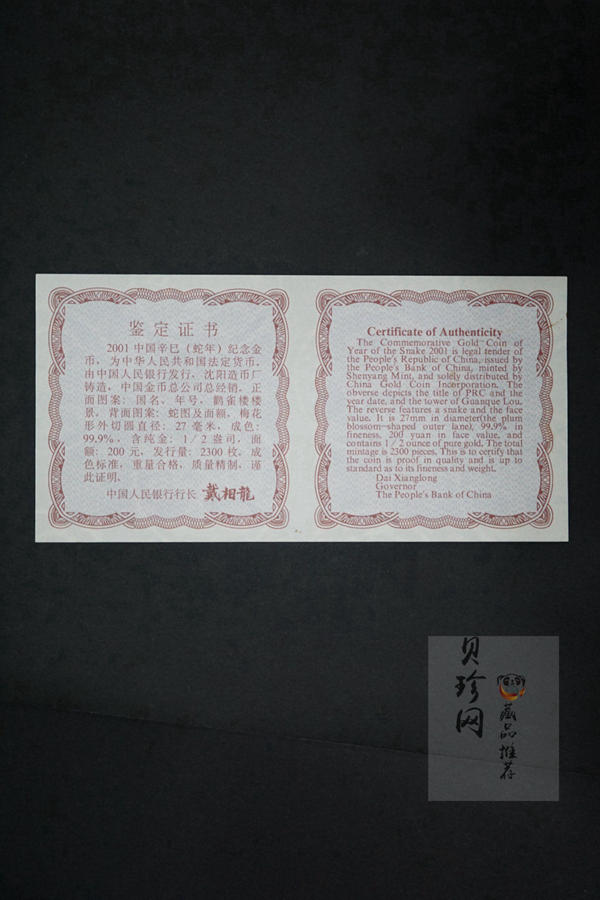 鉴定证书
2001中国辛巳（蛇年）纪念金
币，为中华人民共和国法定货币，
由中国人民银行发行，沈阳造币厂
铸造，中国金币总公司总经销。正
面图案：国名、年号，鹳雀楼楼
景，背面图案：蛇图及面额，梅花
形外切器直径：27毫米，成色：
99.9%，含纯金：1/2盎司，面
额：200元，发行量：2300枚。成
色标准，重量合格，质量精制，谨
此证明。
中国人民银行行长 戴相龍
Certificate of Authenticity
The Commemorative Gold Coin of
Year of the Snake 2001 is legal tender of
the People's Republic of China, issued by
the People's Bank of China, minted by
Shenyang Mint, and solely distributed by
China Gold Coin Incorporation. The
obverse depicts the title of PRC and the
year date, and the tower of Guanque Lou.
The reverse features a snake and the face
value. It is 27mm in diameter(the plum
blossom-shaped outer lane), 99.9% in
fineness, 200 yuan in face value, and
contains 1/2 ounce of pure gold. The total
mintage is 2300 pieces. This is to certify that
the coin is proof in quality and is up to
standard as to its fineness and weight.
Dai Xianglong
Governor
The People's Bank of China
贝珍网
藏品推荐